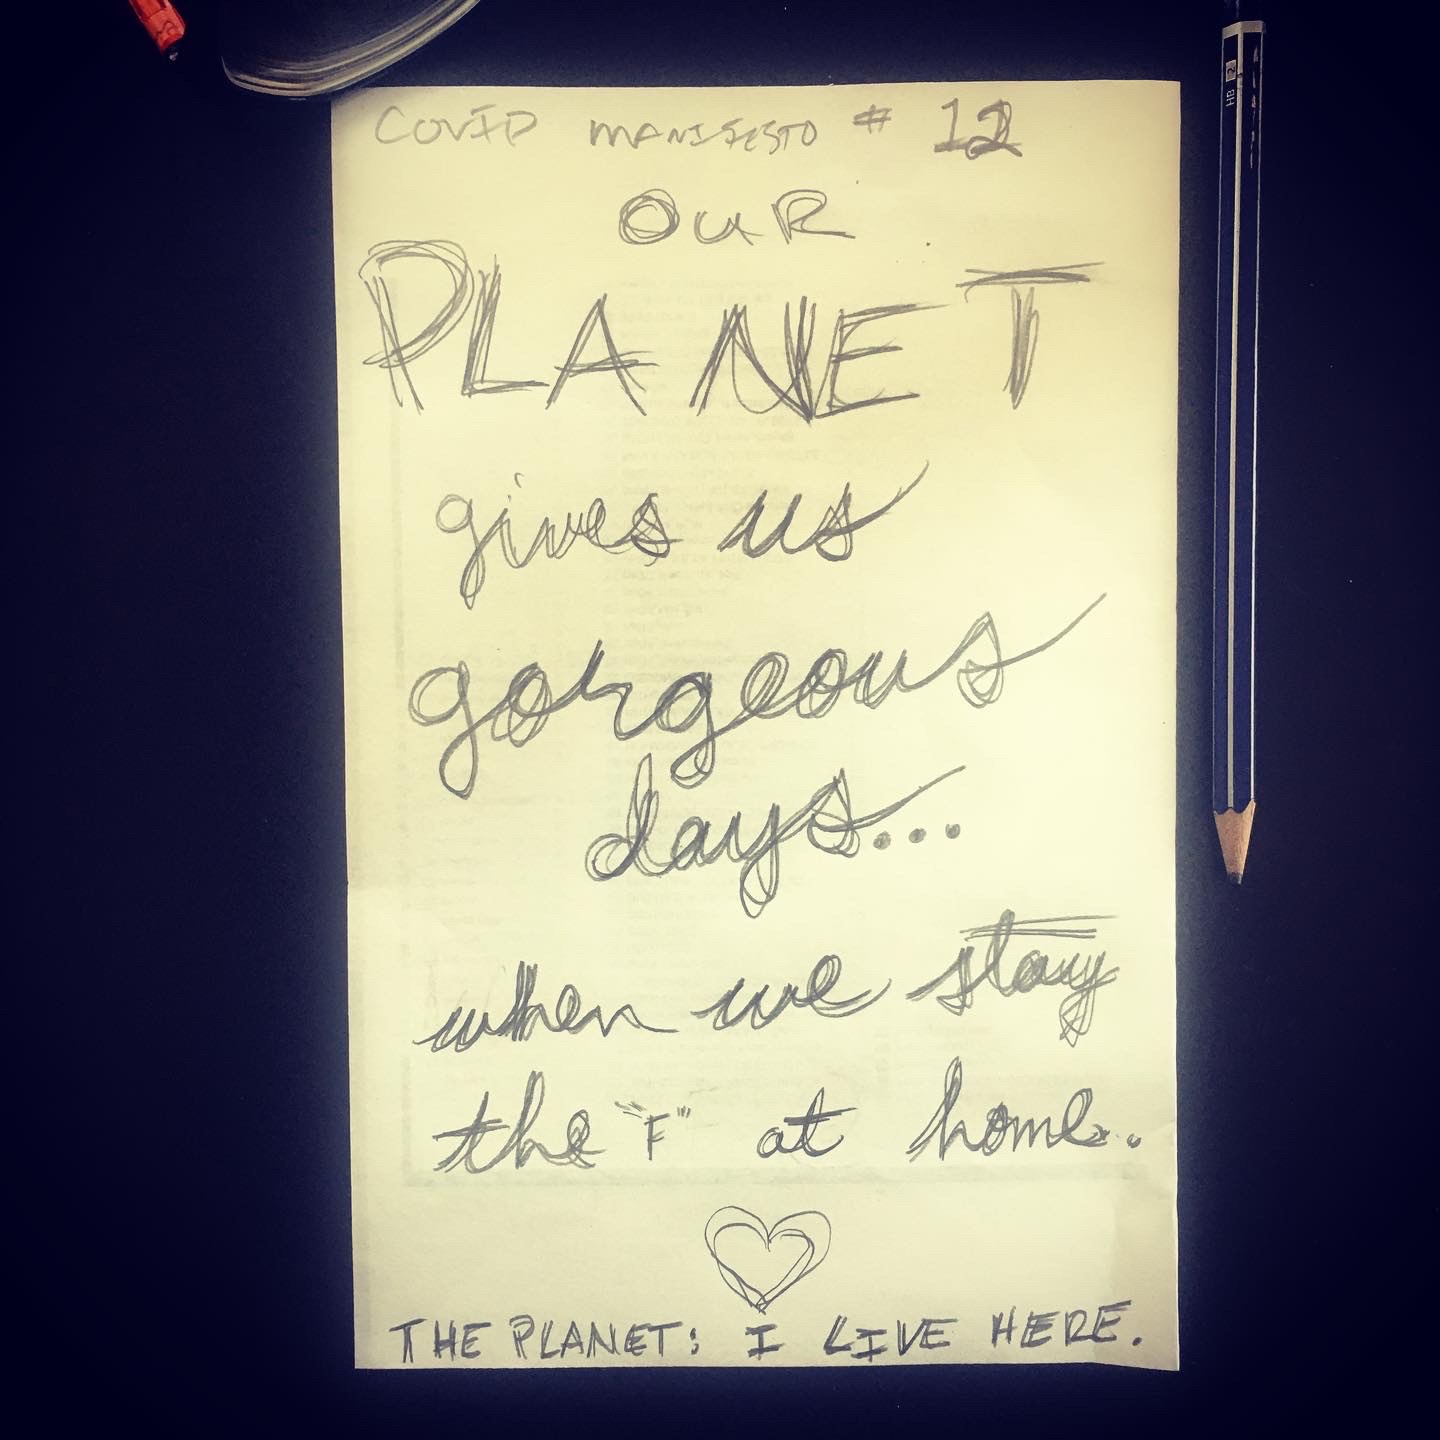 COVID MANIFESTO # 12
OUR
PLANET
gives us
gorgeous
days...
when we stay
the "F" at home...
THE PLANET: I LIVE HERE.
HB 2